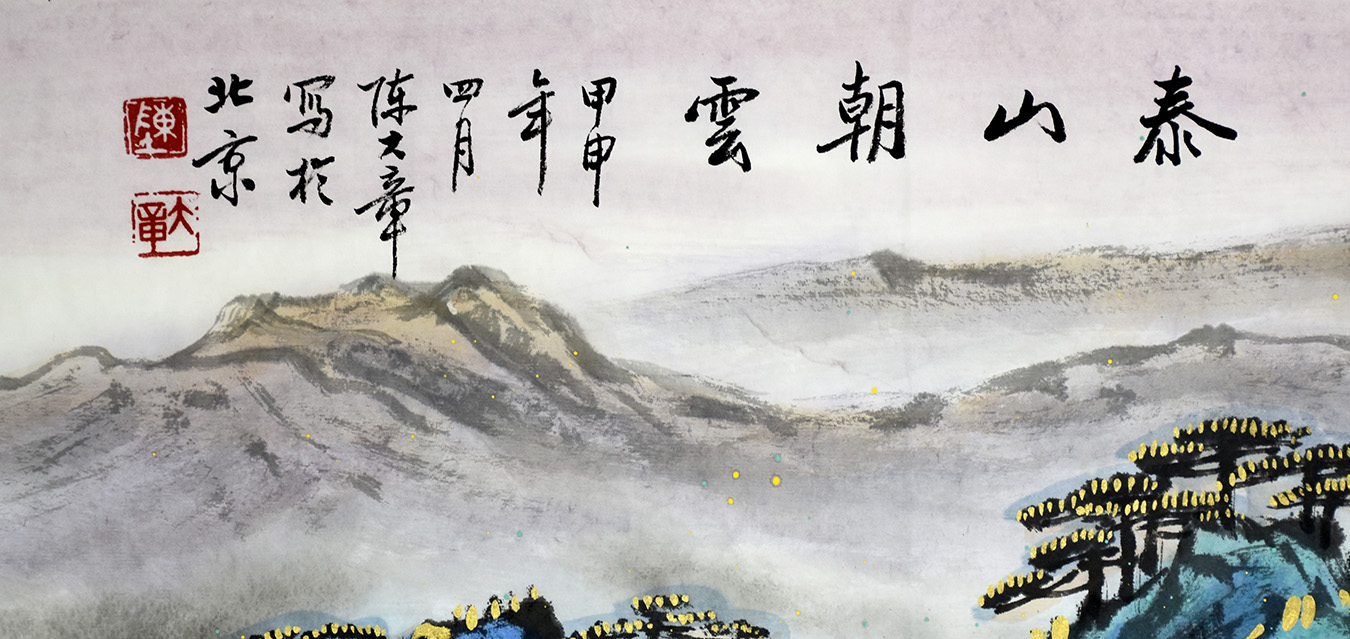 泰山朝雲
甲申
年
四月
陈大章
写於
北京
陳
大章